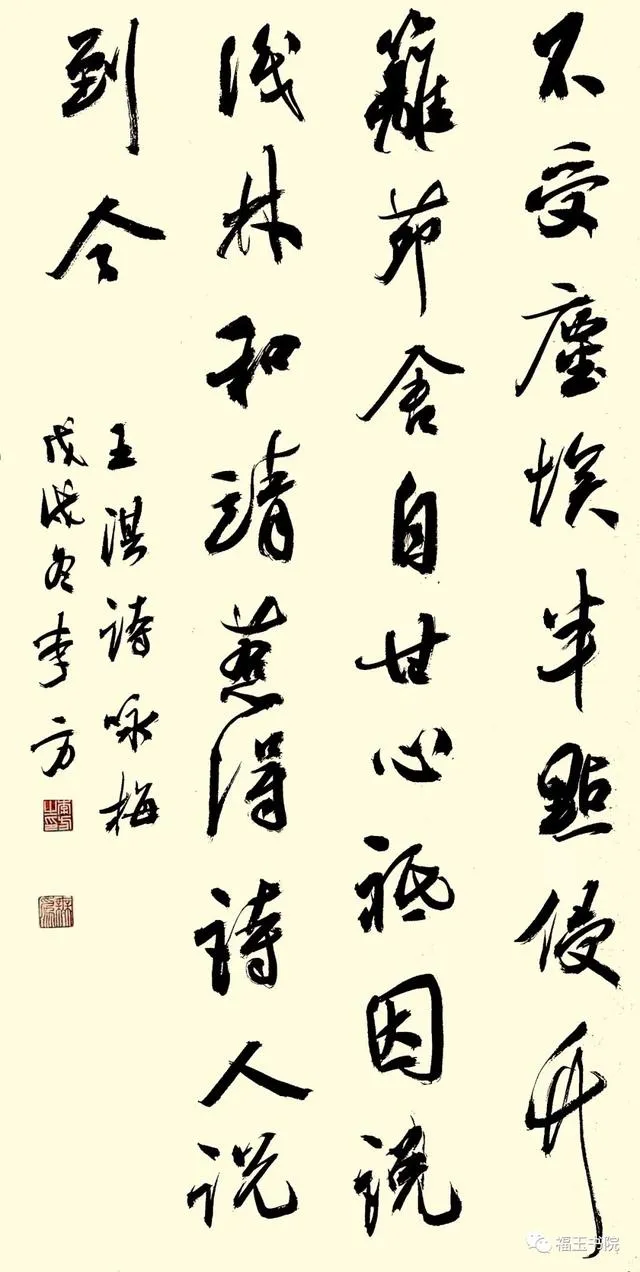 不受塵埃半點侵竹
籬茆舍自甘心祗因誤
識林和靖惹得詩人說
到今
王淇詩咏梅
戊戌冬李方
福玉书院